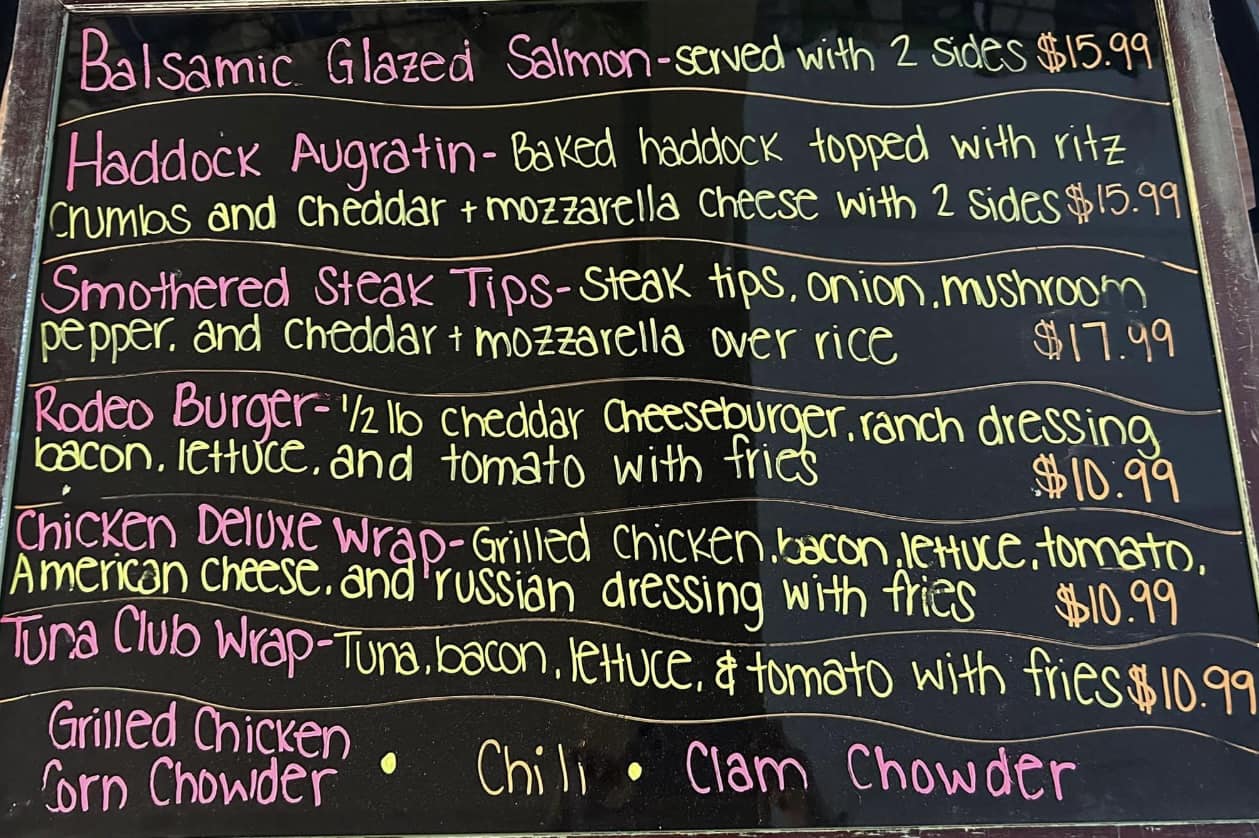 Balsamic Glazed Salmon-served with 2 sides $15.99
Haddock Augratin-Baked haddock topped with ritz
crumbs and cheddar + mozzarella cheese with 2 sides $15.99
Smothered Steak Tips-steak tips, onion, mushroom
pepper, and cheddar + mozzarella over rice $17.99
Rodeo Burger-1/2 lb cheddar cheeseburger, ranch dressing
bacon, lettuce, and tomato with fries $10.99
Chicken Deluxe Wrap-Grilled chicken, bacon, lettuce, tomato,
American cheese, and russian dressing with fries $10.99
Tuna Club Wrap-Tuna, bacon, lettuce, & tomato with fries $10.99
Grilled Chicken
Corn Chowder • Chili • Clam Chowder